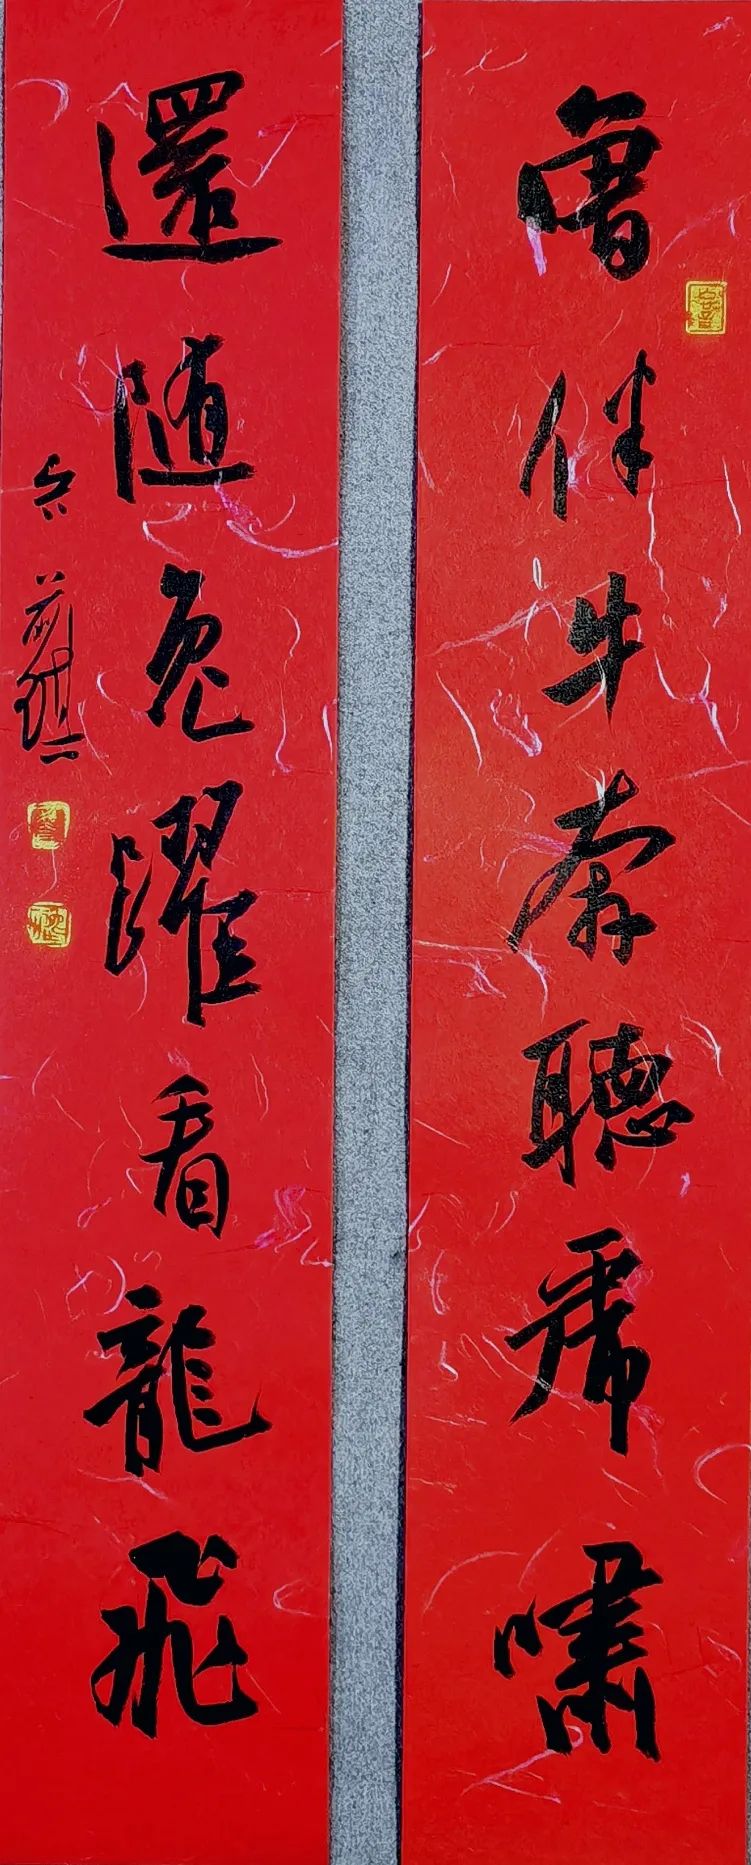 曾伴牛奔聽虎啸
還随兔躍看龍飛